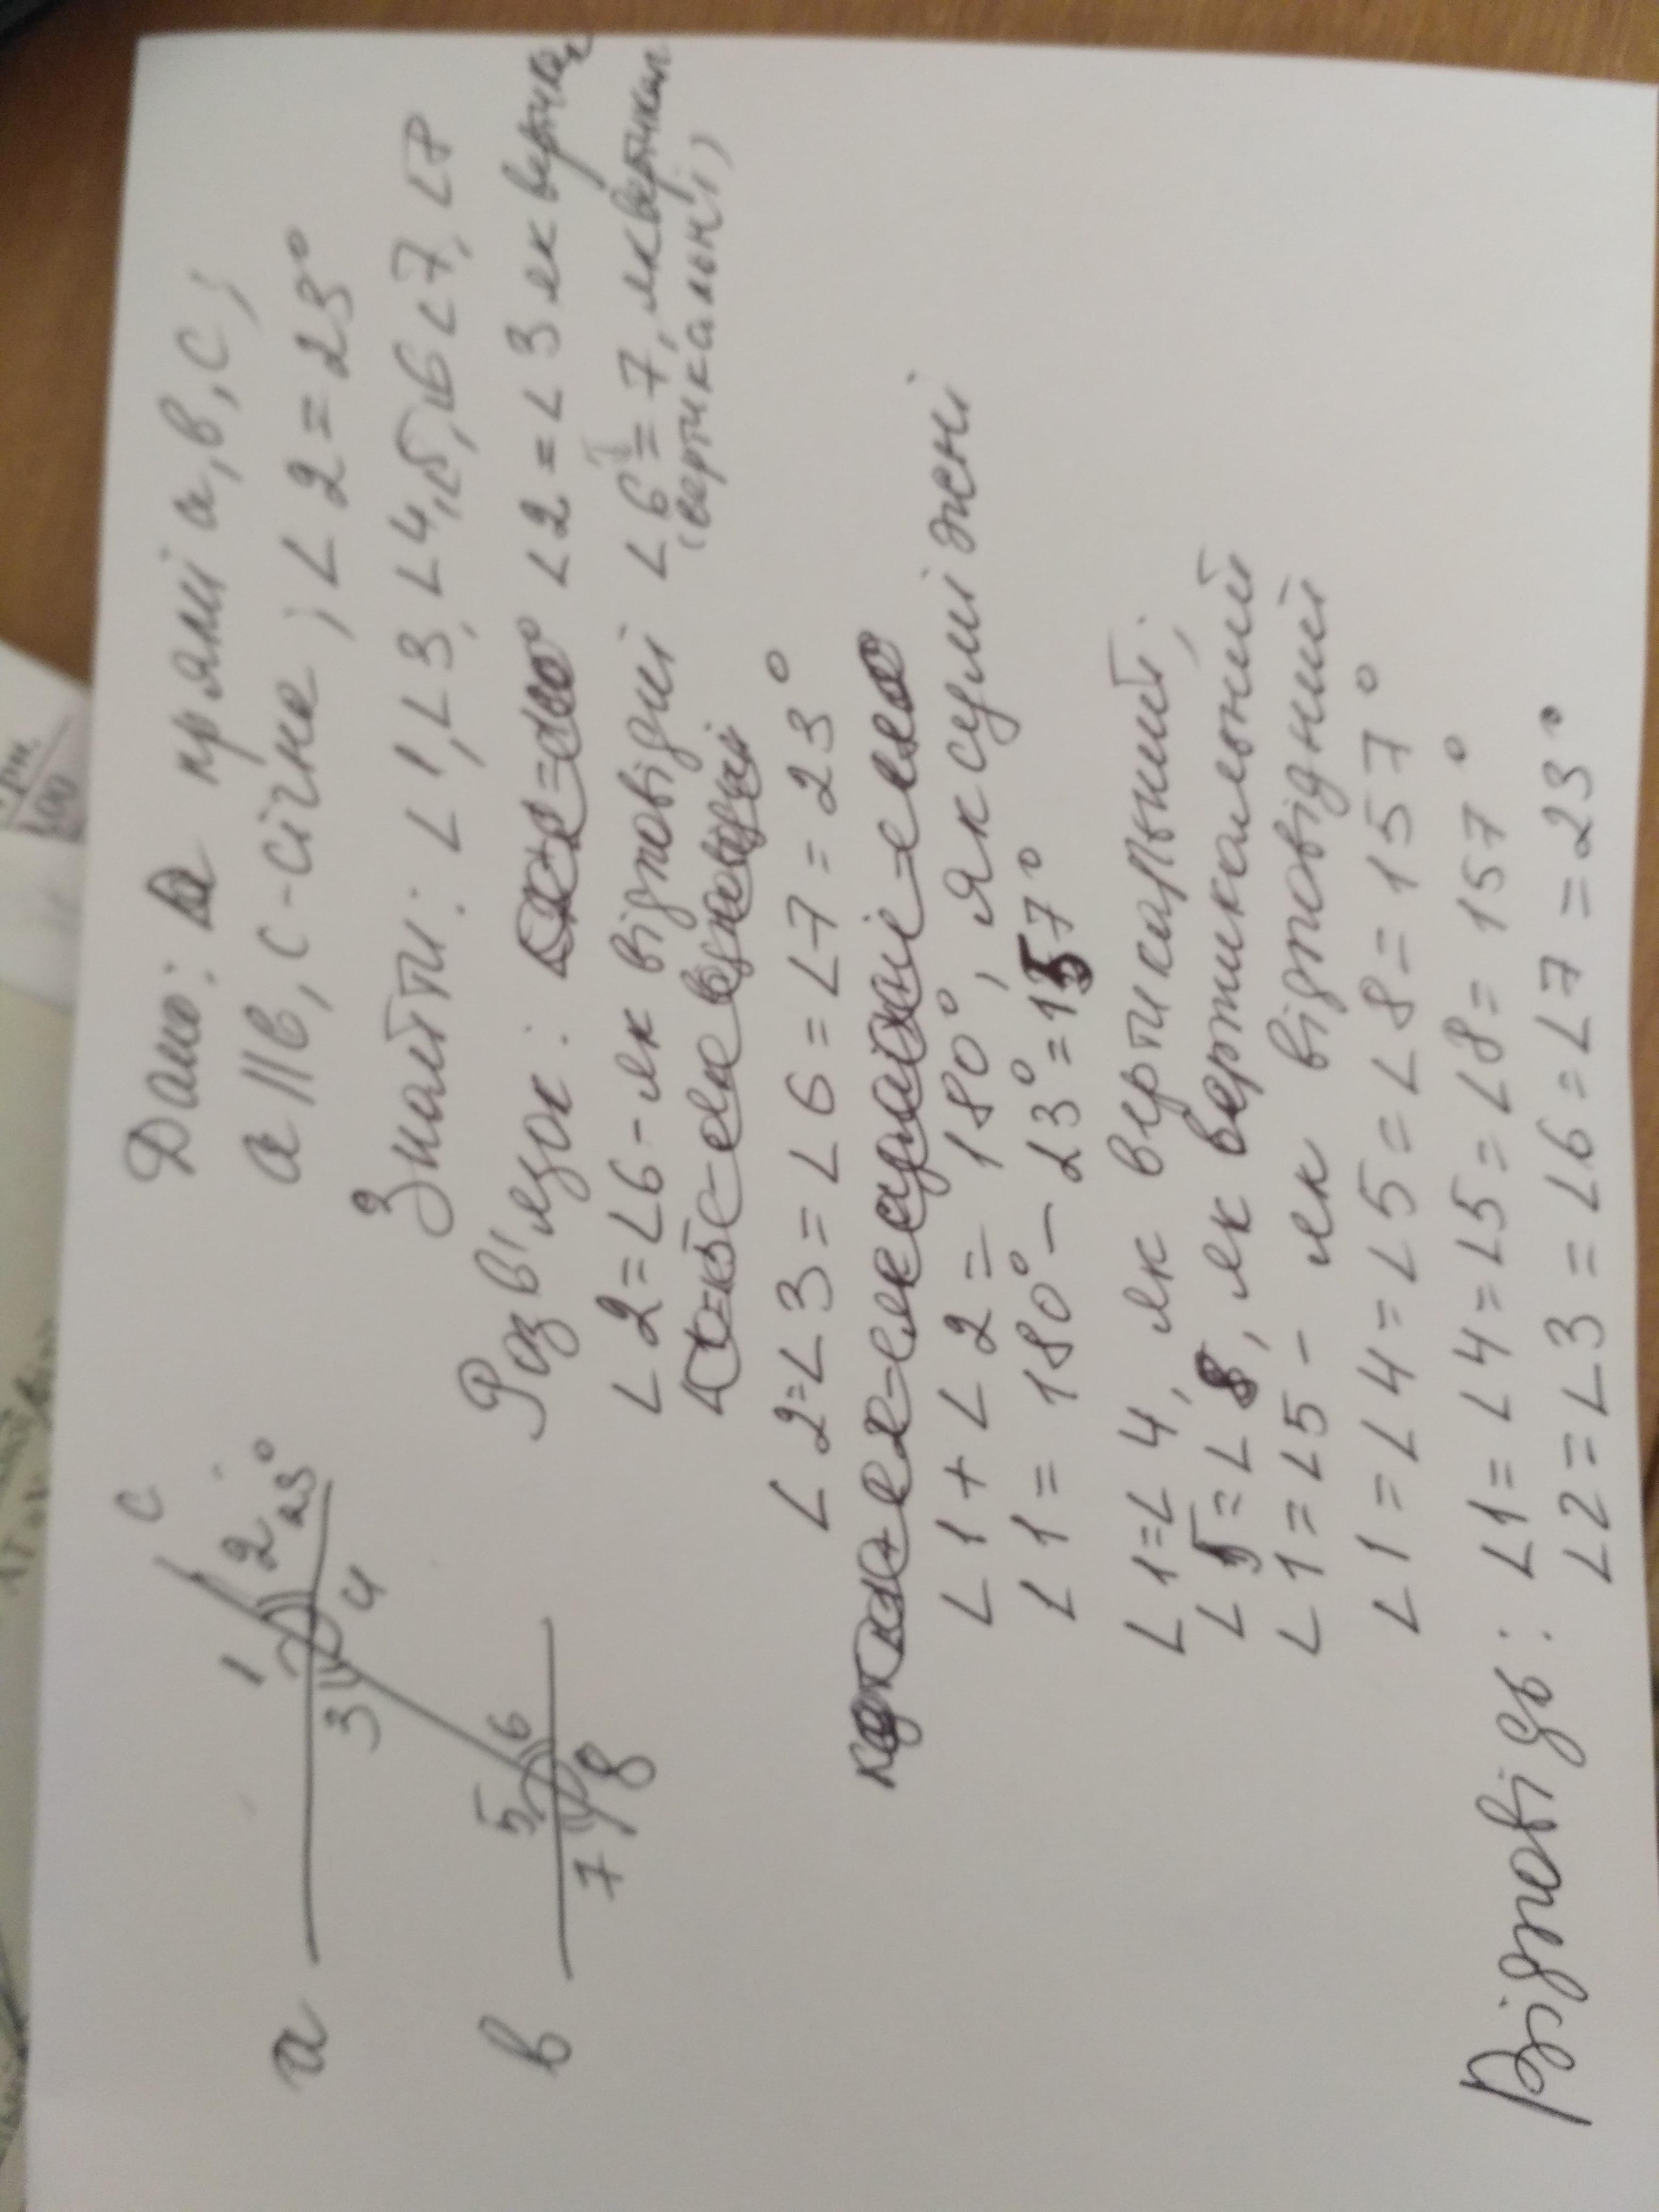 Дано: прямі a, b, c;
a || b, c - січна; ∠2 = 23°
Знайти: ∠1, ∠3, ∠4, ∠5, ∠6 ∠7, ∠8
c
1
2 23°
a
3
4
5
6
b
7
8
Розв'язок: ∠2 = ∠3 як вертикал
∠2 = ∠6 - як відповідні ∠6 = 7, як вертикал
(вертикальні)
∠2 = ∠3 = ∠6 = ∠7 = 23°
∠1 + ∠2 = 180°, як суміжені
∠1 = 180° - 23° = 157°
∠1 = ∠4, як вертикальний;
∠5 = ∠8, як вертикальний
∠1 = ∠5 - як відповідний
∠1 = ∠4 = ∠5 = ∠8 = 157°
Відповідь: ∠1 = ∠4 = ∠5 = ∠8 = 157°
∠2 = ∠3 = ∠6 = ∠7 = 23°